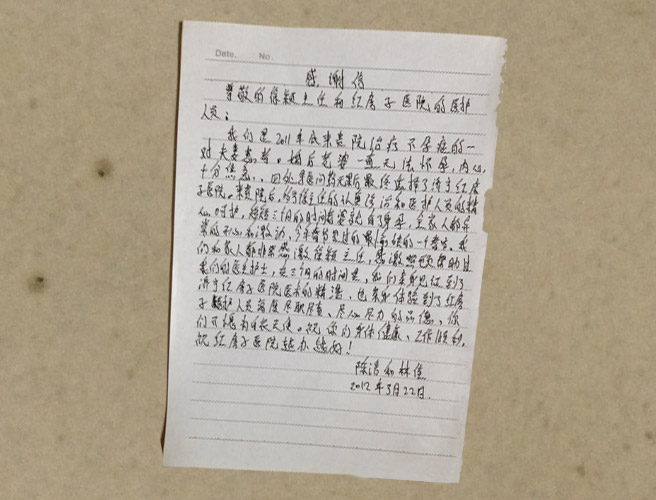 Date. No.
感谢信
尊敬的徐颖主任和红房子医院的医护
人员：
我们是2011年底来贵院治疗不孕症的一
对夫妻患者。婚后老婆一直无法怀孕，内心
十分焦急、四处寻医问药无果后最终选择了济宁红房
子医院。来贵院后，经徐主任的认真诊治和医护人员的精
心呵护，短短三个月的时间老婆就有了身孕，全家人都非
常的开心和激动，今年春节是过的最愉快的一个春节。我
们和家人都非常感激徐颖主任，感激照顾帮助过
我们的医生护士，在三个月的时间里，我们亲身见证到了
济宁红房子医院医术的精湛，也亲身体验到了红房
子医护人员高度尽职尽责、尽心尽力的品德，你
们不愧为白衣天使。祝你们身体健康、工作顺利，
祝红房子医院越办越好！
陈涛和林焦
2012年3月22日.